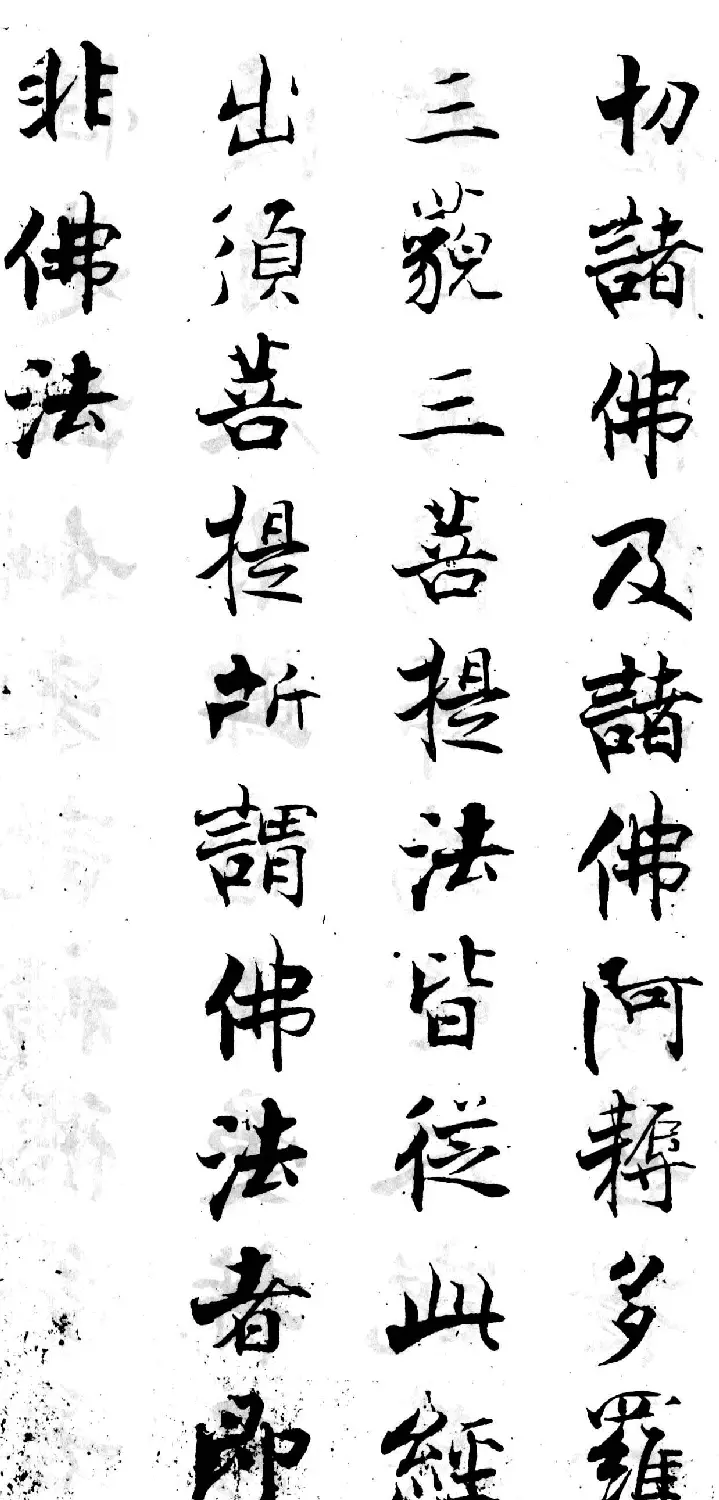 切諸佛及諸佛阿耨多羅
三藐三菩提法皆從此經
出須菩提所謂佛法者即
非佛法